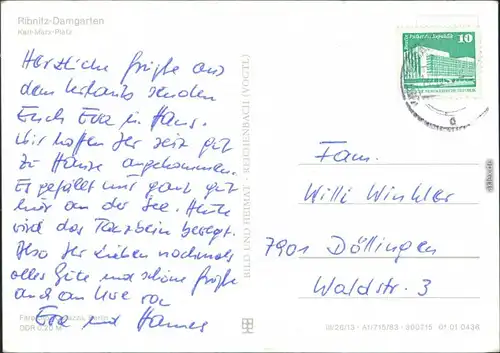 Ribnitz-Damgarten
Karl-Marx-Platz
Herzliche Grüße aus
dem Urlaub senden
Euch Eva u. Hans.
Wir hoffen Ihr seit gut
zu Hause angekommen.
Es gefällt uns ganz gut
hier an der See. Heute
wird das Tanzbein bewegt.
Also Ihr Lieben nochmals
alles Gute und schöne Grüße
auch an Uwe von
Eva und Hannes
Berlin
DDR 0,20 M
BILD UND HEIMAT · REICHENBACH (VOGTL)
10
Fam.
Willi Winkler
7901 Döllingen
Waldstr. 3
III/26/13 · A1/715/83 · 300715 01 01 0436